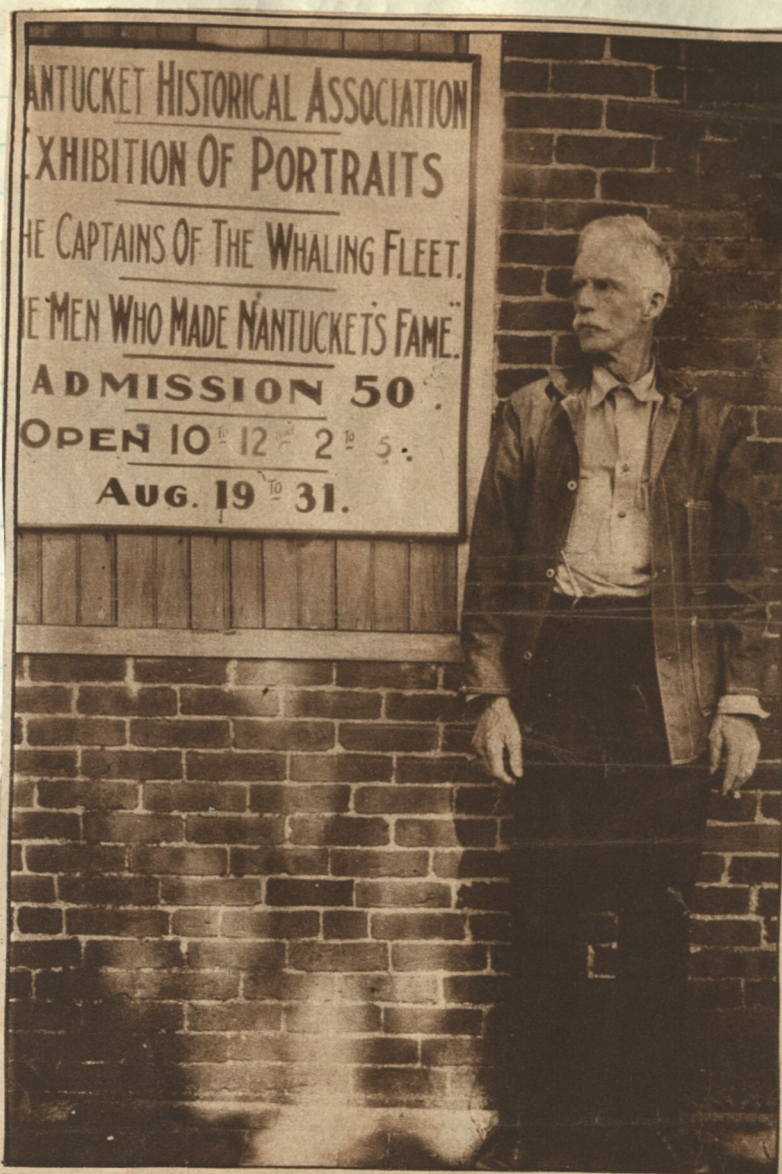 ANTUCKET HISTORICAL ASSOCIATION
EXHIBITION OF PORTRAITS
HE CAPTAINS OF THE WHALING FLEET.
E "MEN WHO MADE NANTUCKET'S FAME."
ADMISSION 50
OPEN 10 TO 12 AND 2 TO 5.
AUG. 19 TO 31.